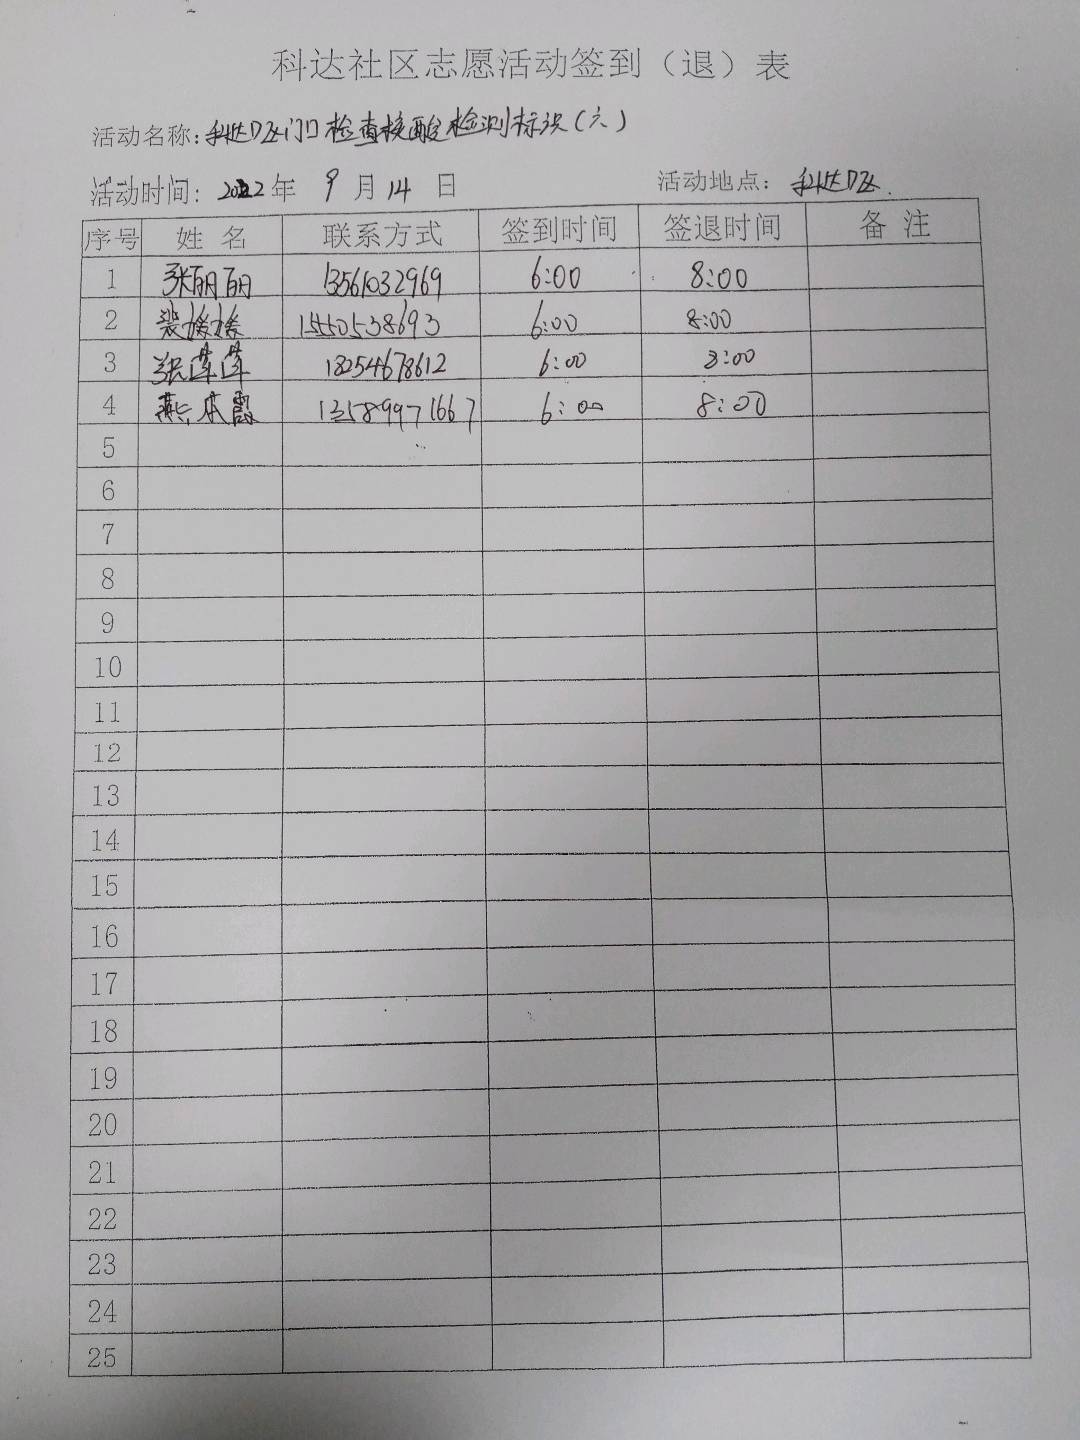 科达社区志愿活动签到（退）表
活动名称：科达D区门口检查核酸检测标识（六）
活动时间：2022年 9月14日 活动地点：科达D区.
序号 姓名 联系方式 签到时间 签退时间 备注
1 张丽丽 13561032969 6:00 8:00
2 裴媛媛 15550538693 6:00 8:00
3 张莲莲 18254678612 6:00 8:00
4 燕本霞 13589971667 6:00 8:00
5
6
7
8
9
10
11
12
13
14
15
16
17
18
19
20
21
22
23
24
25